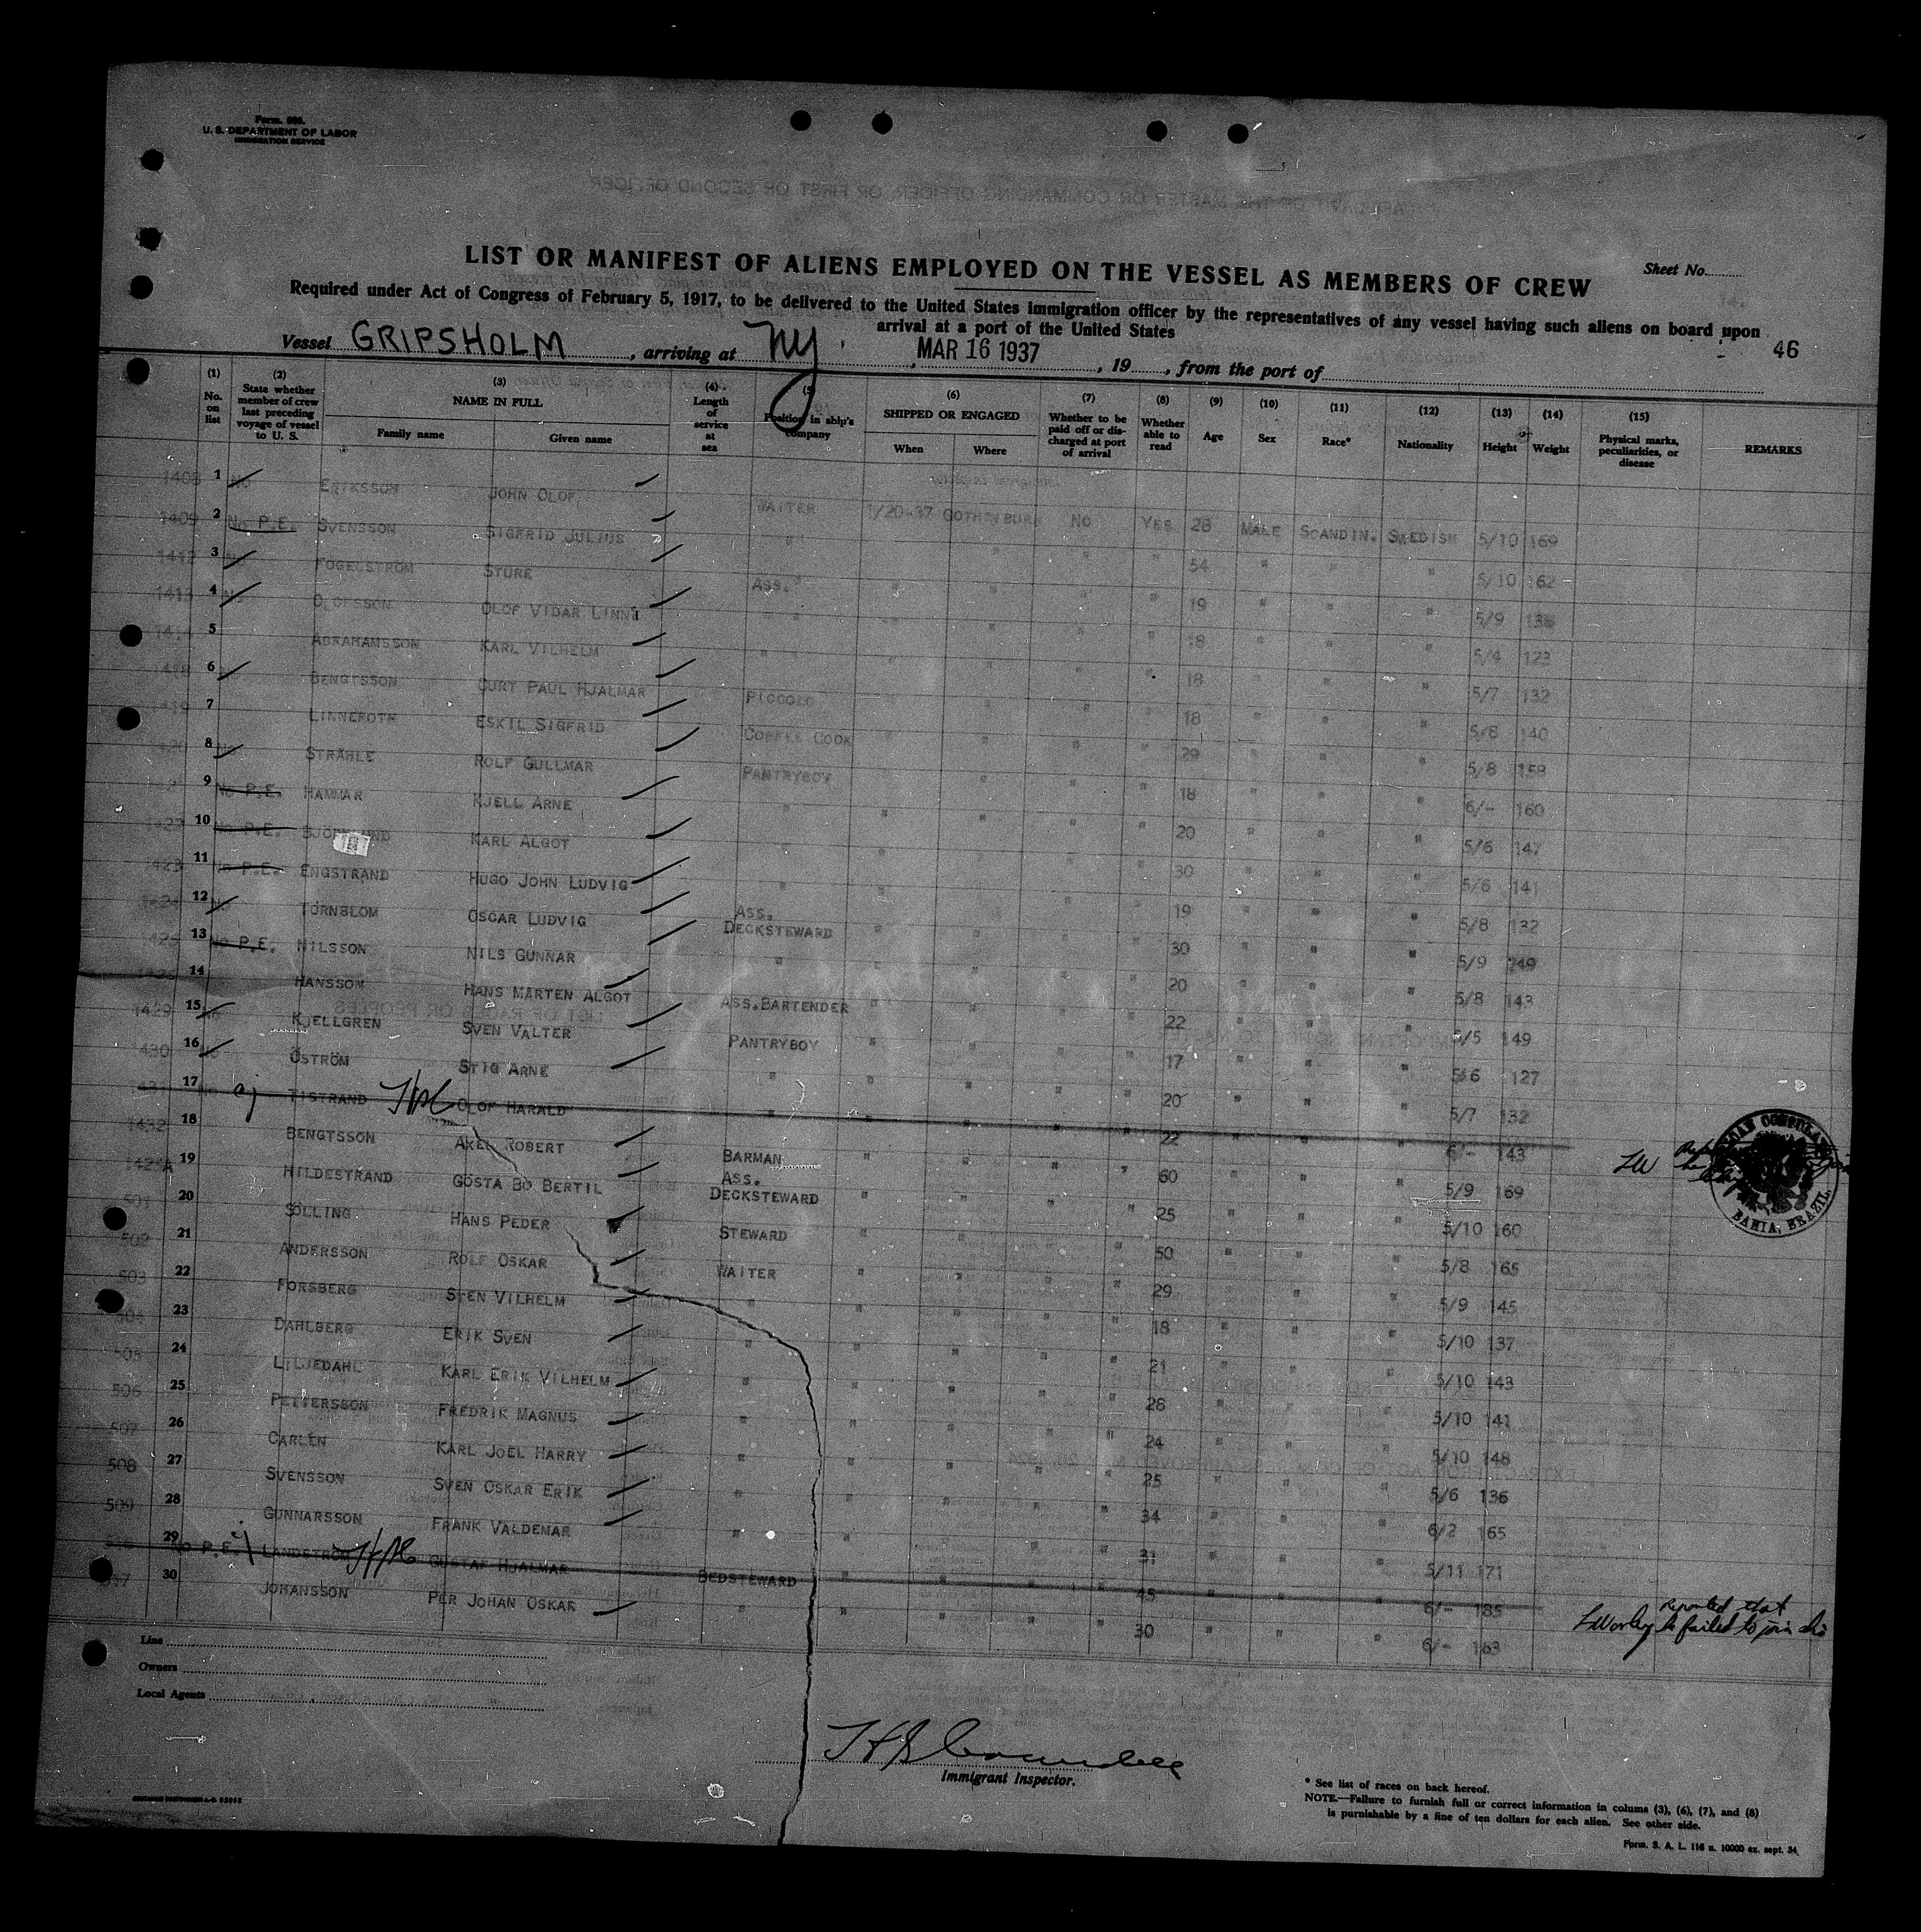 Form. 680.
U. S. DEPARTMENT OF LABOR
IMMIGRATION SERVICE
LIST OR MANIFEST OF ALIENS EMPLOYED ON THE VESSEL AS MEMBERS OF CREW
Sheet No.
Required under Act of Congress of February 5, 1917, to be delivered to the United States immigration officer by the representatives of any vessel having such aliens on board upon
arrival at a port of the United States
46
Vessel GRIPSHOLM, arriving at NY, MAR 16 1937, 19, from the port of
(1) No. on list
(2) State whether member of crew last preceding voyage of vessel to U. S.
(3) NAME IN FULL Family name Given name
(4) Length of service at sea
(5) Position in ship's company
(6) SHIPPED OR ENGAGED When Where
(7) Whether to be paid off or discharged at port of arrival
(8) Whether able to read
(9) Age
(10) Sex
(11) Race*
(12) Nationality
(13) Height
(14) Weight
(15) Physical marks, peculiarities, or disease
REMARKS
1408 1 No ERIKSSON JOHN OLOF WAITER 1/20-37 GOTHENBURG NO YES 28 MALE SCANDIN. SWEDISH 5/10 169
1409 2 No P.E. SVENSSON SIGFRID JULIUS " " " " " 54 " " " 5/10 162
1412 3 No FOGELSTRÖM STURE ASS. " " " " " 19 " " " 5/9 138
1413 4 No OLOFSSON OLOF VIDAR LINNE " " " " " 18 " " " 5/4 123
1414 5 ABRAHAMSSON KARL VILHELM " " " " " 18 " " " 5/7 132
6 BENGTSSON CURT PAUL HJALMAR PICCOLO " " " " 18 " " " 5/8 140
1419 7 LINNEROTH ESKIL SIGFRID COFFEE COOK " " " " 29 " " " 5/8 158
8 No STRÅHLE ROLF GULLMAR PANTRYBOY " " " " 18 " " " 6/- 160
9 No P.E. HAMMAR KJELL ARNE " " " " " 20 " " " 5/6 147
1422 10 No P.E. KARL ALGOT " " " " " 30 " " " 5/6 141
1423 11 No P.E. ENGSTRAND HUGO JOHN LUDVIG " " " " " 19 " " " 5/8 132
1424 12 No TÖRNBLOM OSCAR LUDVIG ASS. DECKSTEWARD " " " " 30 " " " 5/9 149
1425 13 No P.E. NILSSON NILS GUNNAR " " " " " 20 " " " 5/8 143
14 HANSSON HANS MARTEN ALGOT ASS.BARTENDER " " " " 22 " " " 5/5 149
1429 15 No KJELLGREN SVEN VALTER PANTRYBOY " " " " 17 " " " 5/6 127
1430 16 No ÖSTRÖM STIG ARNE " " " " " 20 " " " 5/7 132
1431 17 TISTRAND OLOF HARALD " " " " " 22 " " " 6/- 143 LW
1432 18 BENGTSSON AXEL ROBERT BARMAN " " " " 60 " " " 5/9 169
19 HILDESTRAND GÖSTA BO BERTIL ASS. DECKSTEWARD " " " " 25 " " " 5/10 160
501 20 SÖLLING HANS PEDER STEWARD " " " " 50 " " " 5/8 165
502 21 ANDERSSON ROLF OSKAR WAITER " " " " 29 " " " 5/9 145
503 22 FORSBERG STEN VILHELM " " " " " 18 " " " 5/10 137
504 23 DAHLBERG ERIK SVEN " " " " " 21 " " " 5/10 143
505 24 LILJEDAHL KARL ERIK VILHELM " " " " " 28 " " " 5/10 141
506 25 PETTERSSON FREDRIK MAGNUS " " " " " 24 " " " 5/10 148
507 26 CARLEN KARL JOEL HARRY " " " " " 25 " " " 5/6 136
508 27 SVENSSON SVEN OSKAR ERIK " " " " " 34 " " " 6/2 165
509 28 GUNNARSSON FRANK VALDEMAR " " " " " 31 " " " 5/11 171
29 No P.E. LANDSTRÖM GUSTAF HJALMAR BEDSTEWARD " " " " 45 " " " 6/- 185 Reported that he failed to join
30 JOHANSSON PER JOHAN OSKAR " " " " " 30 " " " 6/- 163
CONSULA
BAHIA, BRAZIL
Line
Owners
Local Agents
Immigrant Inspector.
* See list of races on back hereof.
NOTE.—Failure to furnish full or correct information in colums (3), (6), (7), and (8)
is purnishable by a fine of ten dollars for each alien. See other side.
Form. S. A. L. 116 u. 10000 ex. sept. 34